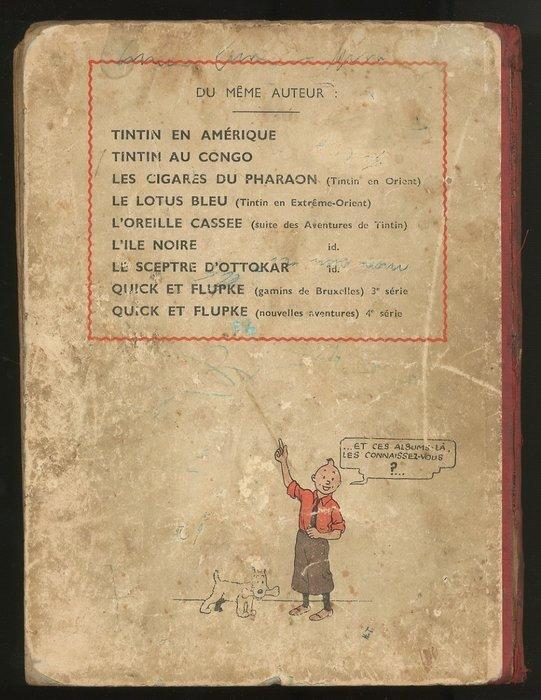 DU MÊME AUTEUR :
TINTIN EN AMÉRIQUE
TINTIN AU CONGO
LES CIGARES DU PHARAON (Tintin en Orient)
LE LOTUS BLEU (Tintin en Extrême-Orient)
L'OREILLE CASSEE (suite des Aventures de Tintin)
L'ILE NOIRE id.
LE SCEPTRE D'OTTOKAR id.
QUICK ET FLUPKE (gamins de Bruxelles) 3e série
QUICK ET FLUPKE (nouvelles aventures) 4e série
...ET CES ALBUMS-LÀ,
LES CONNAISSEZ-VOUS
?...